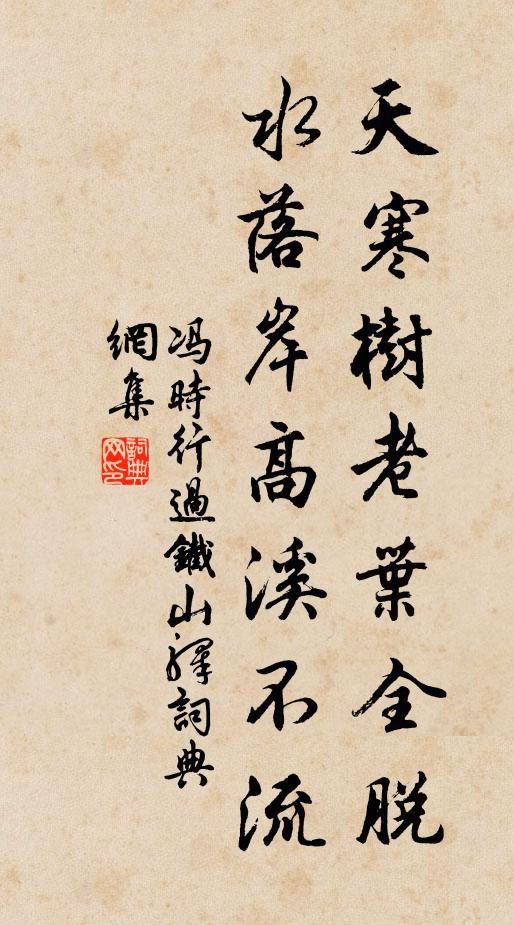 天寒樹老葉全脫
水落岸高溪不流
馮時行過鐵山
釋詞典
網集
詞典网印